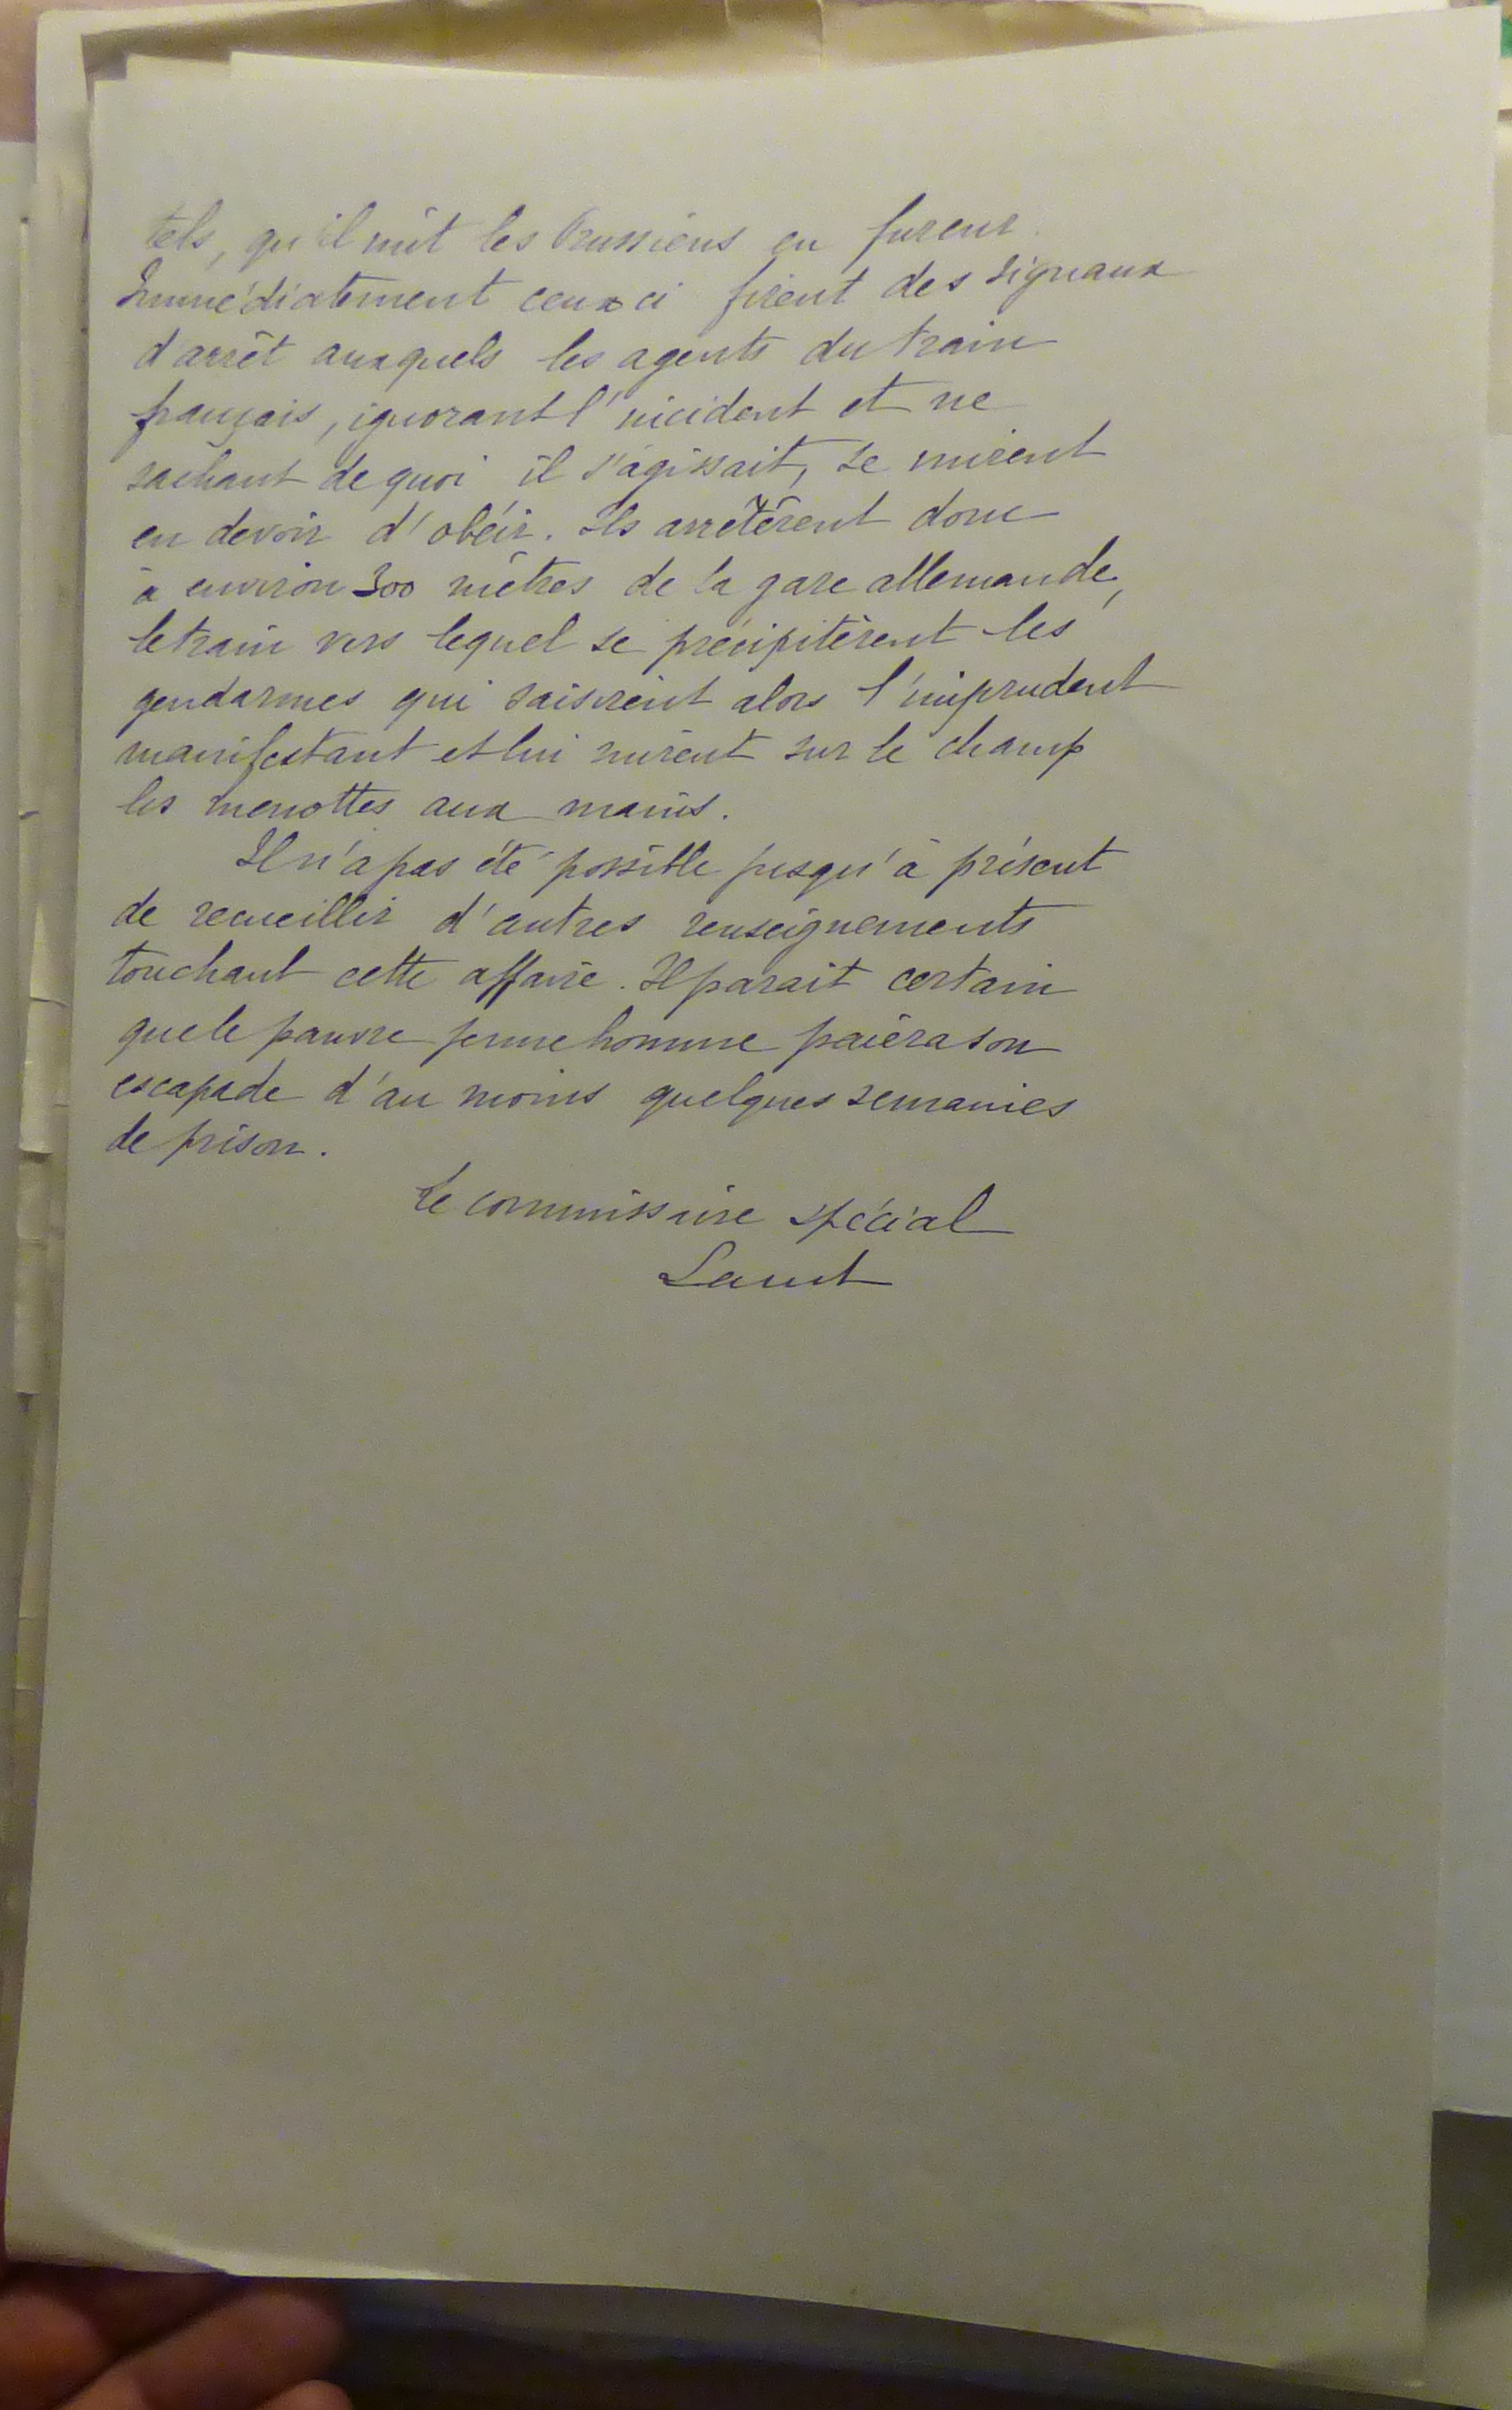 tels, qu'il mit les Prussiens en fureur.
Immédiatement ceux ci firent des signaux
d'arrêt auxquels les agents du train
français, ignorant l'incident et ne
sachant de quoi il s'agissait, se mirent
en devoir d'obéir. Ils arrêtèrent donc
à environ 300 mètres de la gare allemande,
le train vers lequel se précipitèrent les
gendarmes qui saisirent alors l'imprudent
manifestant et lui mirent sur le champ
les menottes aux mains.
Il n'a pas été possible jusqu'à présent
de recueillir d'autres renseignements
touchant cette affaire. Il parait certain
que le pauvre jeune homme paiera son
escapade d'au moins quelques semaines
de prison.
Le commissaire spécial